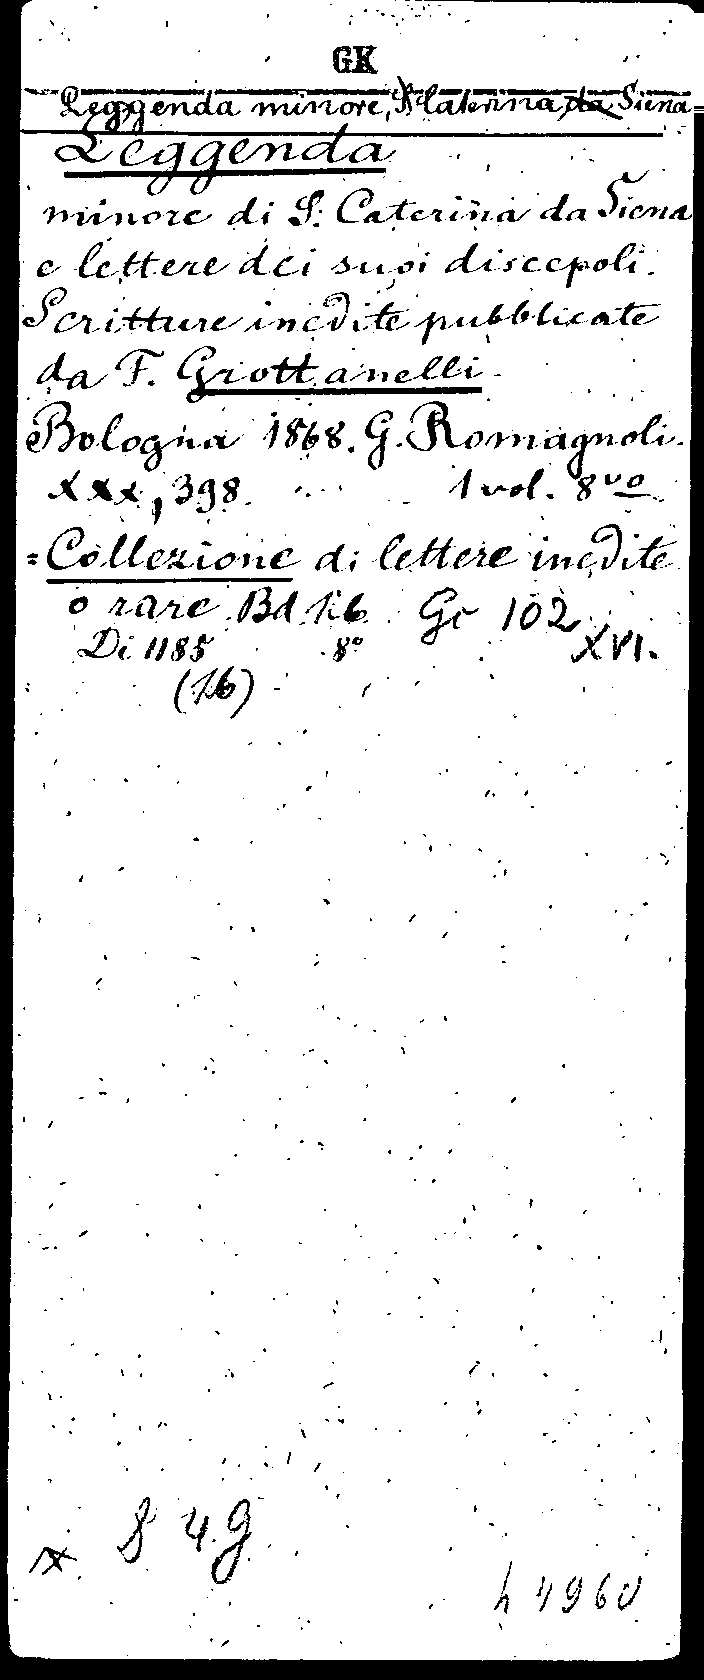 GK
Leggenda minore, S. Caterina da Siena
Leggenda
minore di S. Caterina da Siena
e lettere dei suoi discepoli.
Scritture inedite pubblicate
da F. Grottanelli.
Bologna 1868. G. Romagnoli.
XXX, 398. 1 vol. 8vo
=Collezione di lettere inedite
o rare Bd 16 Gc 102
Di 1185 8° XVI.
(16)
4 g
h 4960